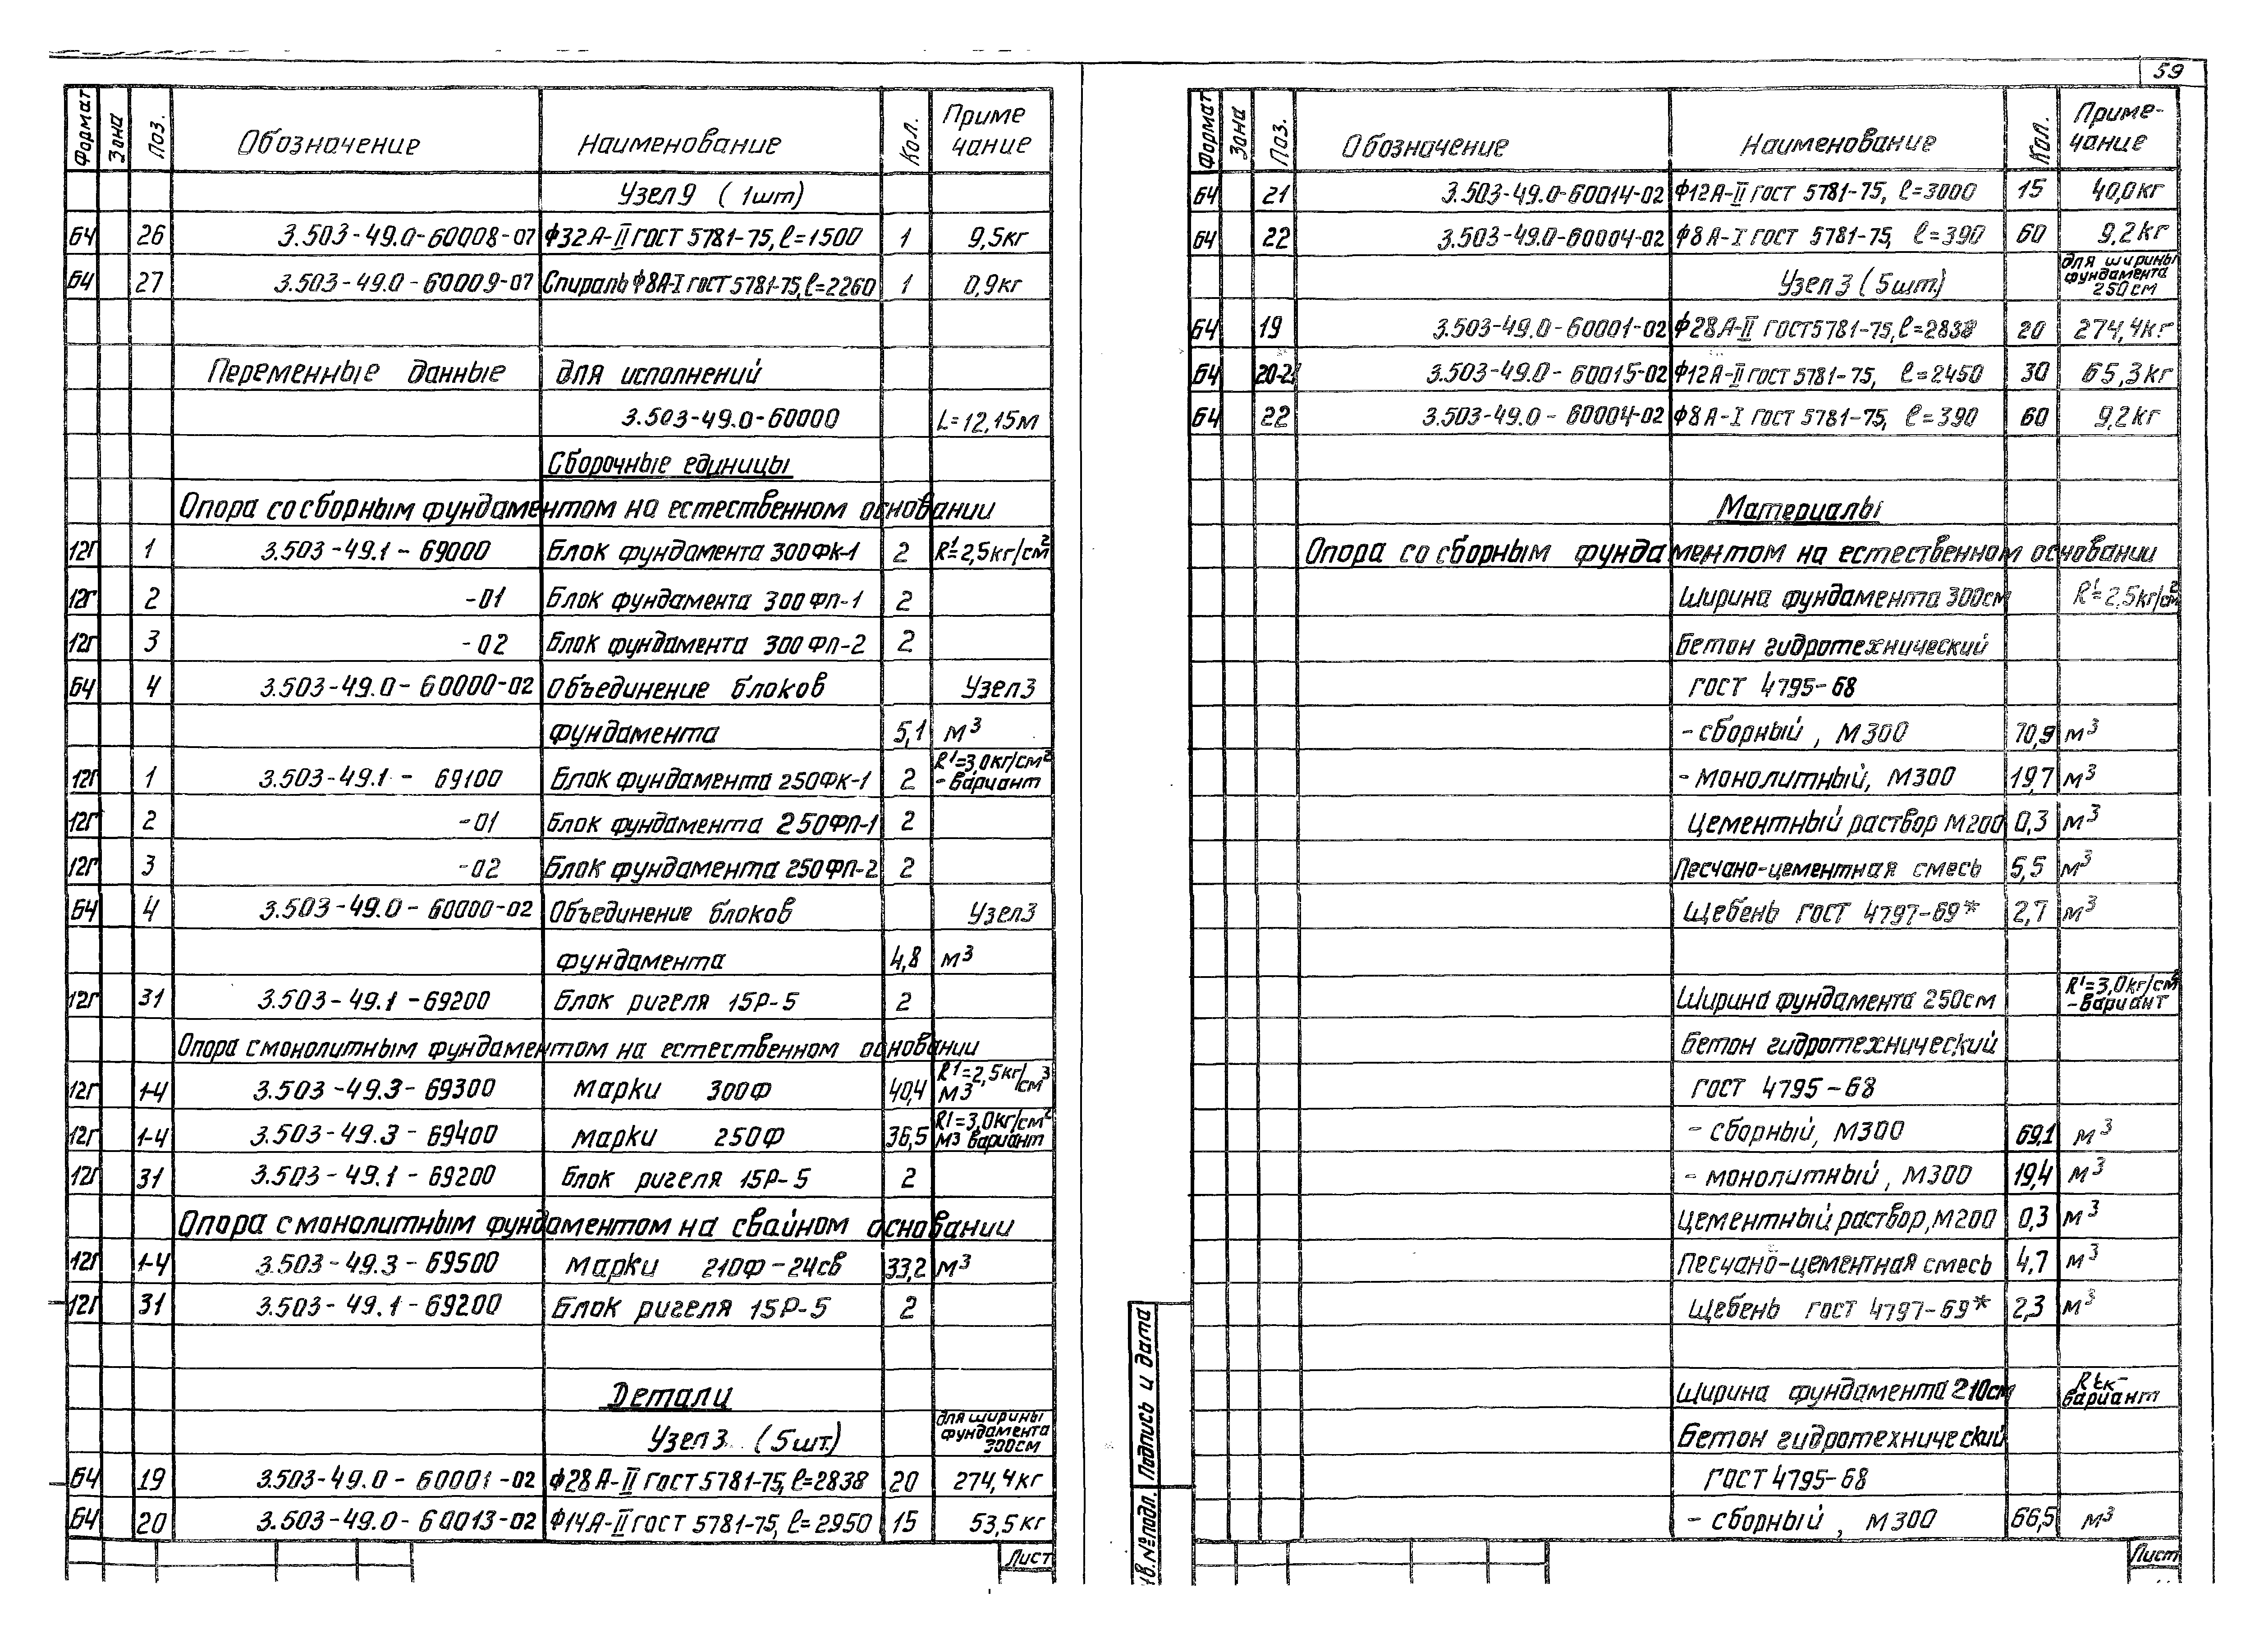 59
Формат Зона Поз. Обозначение Наименование Кол. Приме
чание
Узел 9 (1шт)
БЧ 26 3.503-49.0-60008-07 Ф32А-II ГОСТ 5781-75, ℓ=1500 1 9,5кг
БЧ 27 3.503-49.0-60009-07 Спираль Ф8А-I ГОСТ 5781-75, ℓ=2260 1 0,9кг
Переменные данные для исполнений
3.503-49.0-60000 L=12,15м
Сборочные единицы
Опора со сборным фундаментом на естественном основании
12Г 1 3.503-49.1-69000 Блок фундамента 300ФК-1 2 R¹=2,5кг/см²
12Г 2 -01 Блок фундамента 300ФП-1 2
12Г 3 -02 Блок фундамента 300ФП-2 2
БЧ 4 3.503-49.0-60000-02 Объединение блоков Узел3
фундамента 5,1 м³
12Г 1 3.503-49.1-69100 Блок фундамента 250ФК-1 2 R¹=3,0кг/см²
-вариант
12Г 2 -01 Блок фундамента 250ФП-1 2
12Г 3 -02 Блок фундамента 250ФП-2 2
БЧ 4 3.503-49.0-60000-02 Объединение блоков Узел3
фундамента 4,8 м³
12Г 31 3.503-49.1-69200 Блок ригеля 15Р-5 2
Опора с монолитным фундаментом на естественном основании
12Г 1-4 3.503-49.3-69300 марки 300Ф 40,4 R¹=2,5кг/см³
м3
12Г 1-4 3.503-49.3-69400 марки 250Ф 36,5 R¹=3,0кг/см²
м3 вариант
12Г 31 3.503-49.1-69200 Блок ригеля 15Р-5 2
Опора с монолитным фундаментом на свайном основании
12Г 1-4 3.503-49.3-69500 марки 210Ф-24св 33,2 м³
12Г 31 3.503-49.1-69200 Блок ригеля 15Р-5 2
Детали
Узел 3 (5шт.) для ширины
фундамента
300см
БЧ 19 3.503-49.0-60001-02 Ф28А-II ГОСТ 5781-75, ℓ=2838 20 274,4кг
БЧ 20 3.503-49.0-60013-02 Ф14А-II ГОСТ 5781-75, ℓ=2950 15 53,5кг
Лист
Формат Зона Поз. Обозначение Наименование Кол. Приме-
чание
БЧ 21 3.503-49.0-60014-02 Ф12А-II ГОСТ 5781-75, ℓ=3000 15 40,0кг
БЧ 22 3.503-49.0-60004-02 Ф8А-I ГОСТ 5781-75, ℓ=390 60 9,2кг
Узел 3 (5шт.) для ширины
фундамента
250см
БЧ 19 3.503-49.0-60001-02 Ф28А-II ГОСТ 5781-75, ℓ=2838 20 274,4кг
БЧ 20-21 3.503-49.0-60015-02 Ф12А-II ГОСТ 5781-75, ℓ=2450 30 65,3кг
БЧ 22 3.503-49.0-60004-02 Ф8А-I ГОСТ 5781-75, ℓ=390 60 9,2кг
Материалы
Опора со сборным фундаментом на естественном основании
Ширина фундамента 300см R¹=2,5кг/см²
Бетон гидротехнический
ГОСТ 4795-68
-сборный, М300 70,9 м³
-монолитный, М300 19,7 м³
Цементный раствор М200 0,3 м³
Песчано-цементная смесь 5,5 м³
Щебень ГОСТ 4797-69* 2,7 м³
Ширина фундамента 250см R¹=3,0кг/см²
-вариант
Бетон гидротехнический
ГОСТ 4795-68
- сборный, М300 69,1 м³
- монолитный, М300 19,4 м³
Цементный раствор, М200 0,3 м³
Песчано-цементная смесь 4,7 м³
Щебень ГОСТ 4797-69* 2,3 м³
Ширина фундамента 210см Rск-
вариант
Бетон гидротехнический
ГОСТ 4795-68
- сборный, М300 66,5 м³
Лист
Подпись и дата
в.№подл.